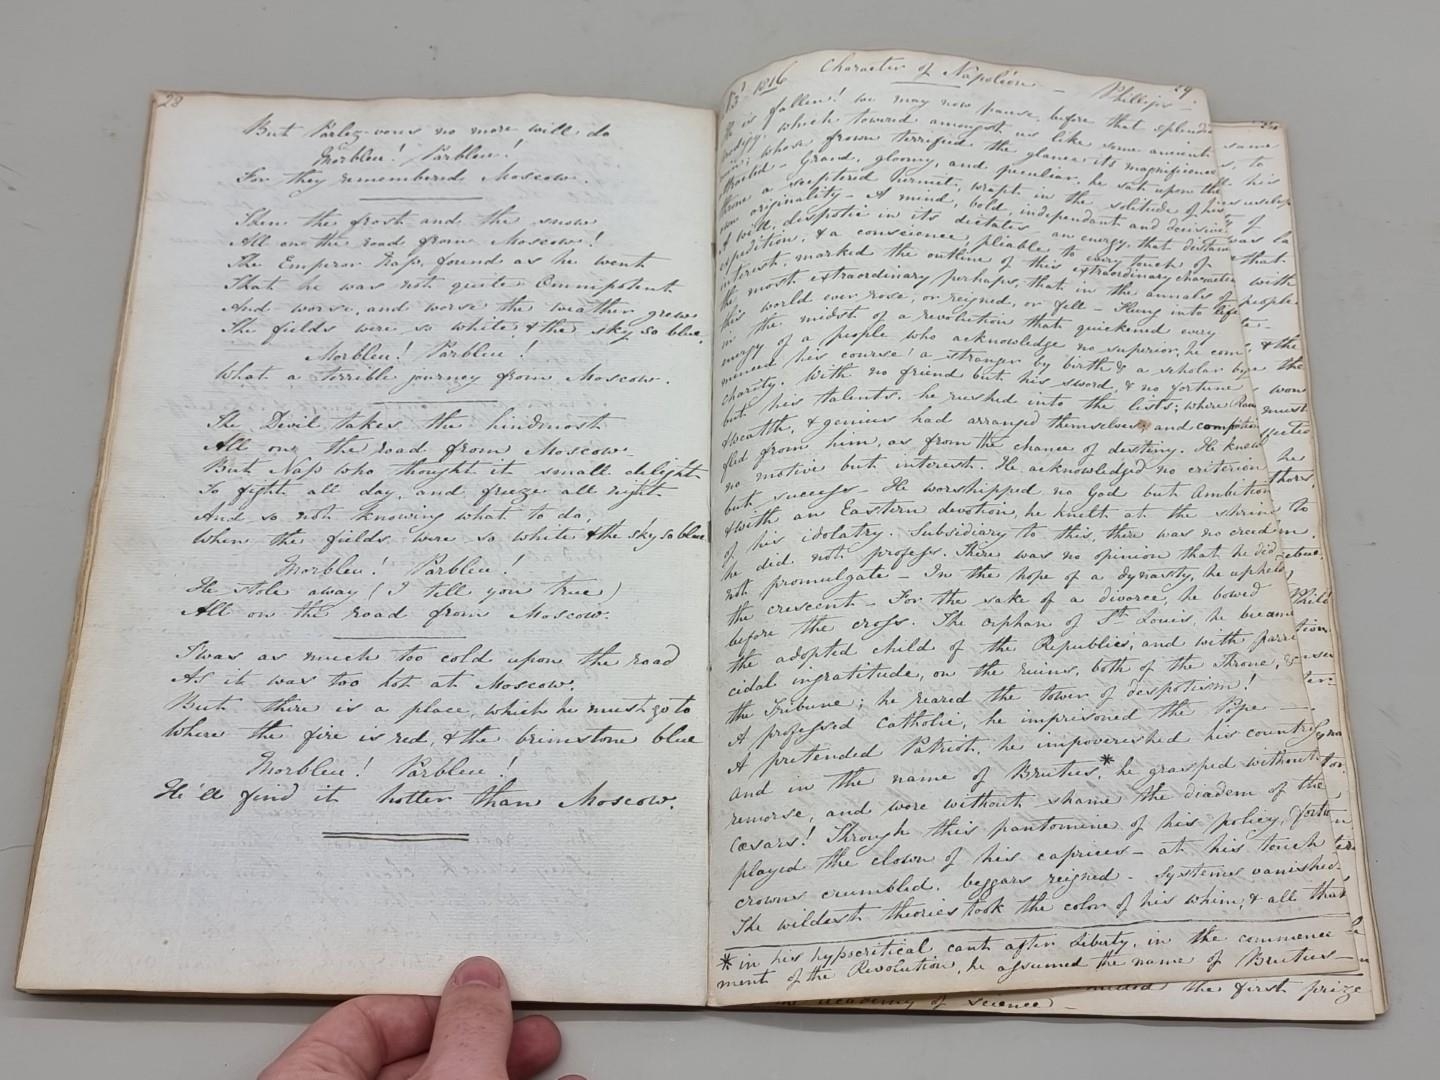 28
But Parlez-vous no more will do
Morbleu! Parbleu!
For they remembered Moscow.
Then the frost and the snow
All on the road from Moscow!
The Emperor Nap. found as he went
That he was not quite Omnipotent
And worse, and worse the weather grew
The fields were so white & the sky so blue,
Morbleu! Parbleu!
What a terrible journey from Moscow.
The Devil takes the hindmost
All on the road from Moscow.
But Nap who thought it small delight
To fight all day, and freeze all night
And so not knowing what to do,
When the fields were so white & the sky so blue
Morbleu! Parbleu!
He stole away (I tell you true)
All on the road from Moscow.
Twas as much too cold upon the road
As it was too hot at Moscow.
But there is a place, which he must go to
Where the fire is red, & the brimstone blue
Morbleu! Parbleu!
He'll find it hotter than Moscow.
1816 Character of Napoléon — Phillips. 29
He is fallen! we may now pause, before that splendid
prodigy, which towered amongst us like some ancient
ruin, whose frown terrified the glance its magnificence
attracted – Grand, gloomy, and peculiar, he sat upon the
throne a sceptered Hermit, wrapt in the solitude of his
own originality – A mind, bold, independant and decisive
A will, despotic in its dictates – an energy, that distanced
expedition, & a conscience, pliable to every touch of
interest, marked the outline of this extraordinary character
the most extraordinary perhaps, that in the annals of
this world ever rose, or reigned, or fell – Flung into life
in the midst of a revolution that quickened every
energy of a people who acknowledge no superior, he com
menced his course! a stranger by birth & a scholar by
charity. With no friend but his sword, & no fortune
but his talents. he rushed into the lists; where Rank
& wealth, & genius had arranged themselves; and competition
fled from him, as from the chance of destiny. He knew
no motive but interest. He acknowledged no criterion
but success – He worshipped no God but Ambition
& with an Eastern devotion, he knelt at the shrine
of his idolatry. Subsidiary to this, there was no creed
he did not profess. There was no opinion that he did
not promulgate – In the hope of a dynasty, he upheld
the crescent – For the sake of a divorce, he bowed
before the cross. The orphan of St. Louis, he became
the adopted child of the Republic; and with parri
cidal ingratitude, on the ruins, both of the Throne, &
the Tribune; he reared the tower of despotism!
A professed Catholic, he imprisoned the Pope —
A pretended Patriot, he impoverished his country,
and in the name of Brutus,* he grasped without
remorse, and wore without shame the diadem of the
Cæsars! Through this pantomine of his policy, fortune
played the clown of his caprices – at his touch
crowns crumbled. beggars reigned – Systems vanished.
The wildest theories took the color of his whim, & all that
* in his hypocritical cant after Liberty, in the commence
ment of the Revolution, he assumed the name of Brutus —
the first prize
Academy of science –